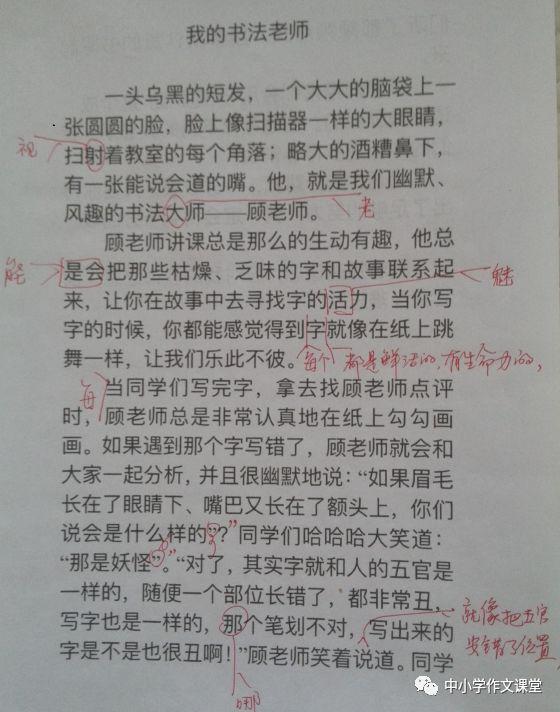 我的书法老师
一头乌黑的短发，一个大大的脑袋上一
张圆圆的脸，脸上像扫描器一样的大眼睛，
视
扫射着教室的每个角落；略大的酒糟鼻下，
有一张能说会道的嘴。他，就是我们幽默、
风趣的书法大师——顾老师。
老
顾老师讲课总是那么的生动有趣，他总
能
是会把那些枯燥、乏味的字和故事联系起
魅
来，让你在故事中去寻找字的活力，当你写
字的时候，你都能感觉得到字就像在纸上跳
舞一样，让我们乐此不彼。
每个 都是鲜活的，有生命力的，
每
当同学们写完字，拿去找顾老师点评
时，顾老师总是非常认真地在纸上勾勾画
画。如果遇到那个字写错了，顾老师就会和
大家一起分析，并且很幽默地说：“如果眉毛
长在了眼睛下、嘴巴又长在了额头上，你们
说会是什么样的”？”同学们哈哈哈大笑道：
“那是妖怪”。“对了，其实字就和人的五官是
一样的，随便一个部位长错了，都非常丑，
写字也是一样的，那个笔划不对，写出来的
就像把五官
安错了位置，
字是不是也很丑啊！”顾老师笑着说道。同学
哪
中小学作文课堂